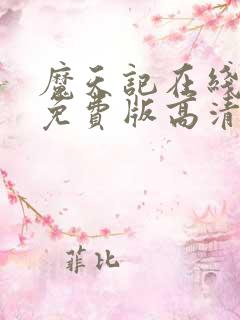 魔天記在綫
免費版高清
菲比